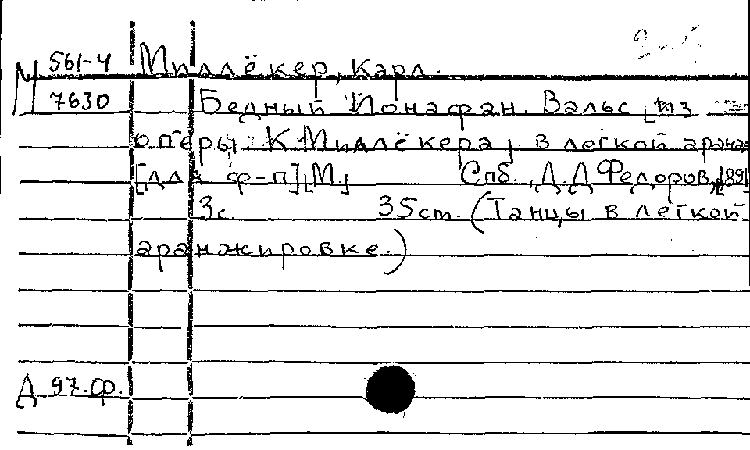 М 561-4 Миллёкер, Карл.
7630 Бедный Ионафан. Вальс [из
оперы К Миллёкера] в легкой аранж
[для ф-п] [М] Спб., Д.Д Федоров, 1891
3с. 35cm. (Танцы в легкой
аранжировке.)
Д 97.ср.